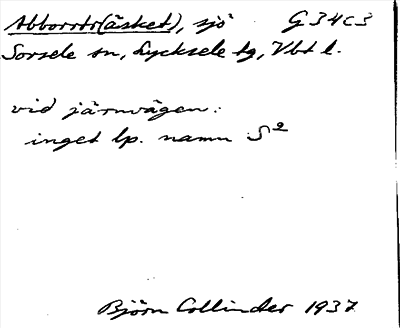 Abborrtr(äsket), sjö G 34 c 3
Sorsele sn, Lycksele tg, Vbt l.
vid järnvägen:
inget lp. namn S²
Björn Collinder 1937